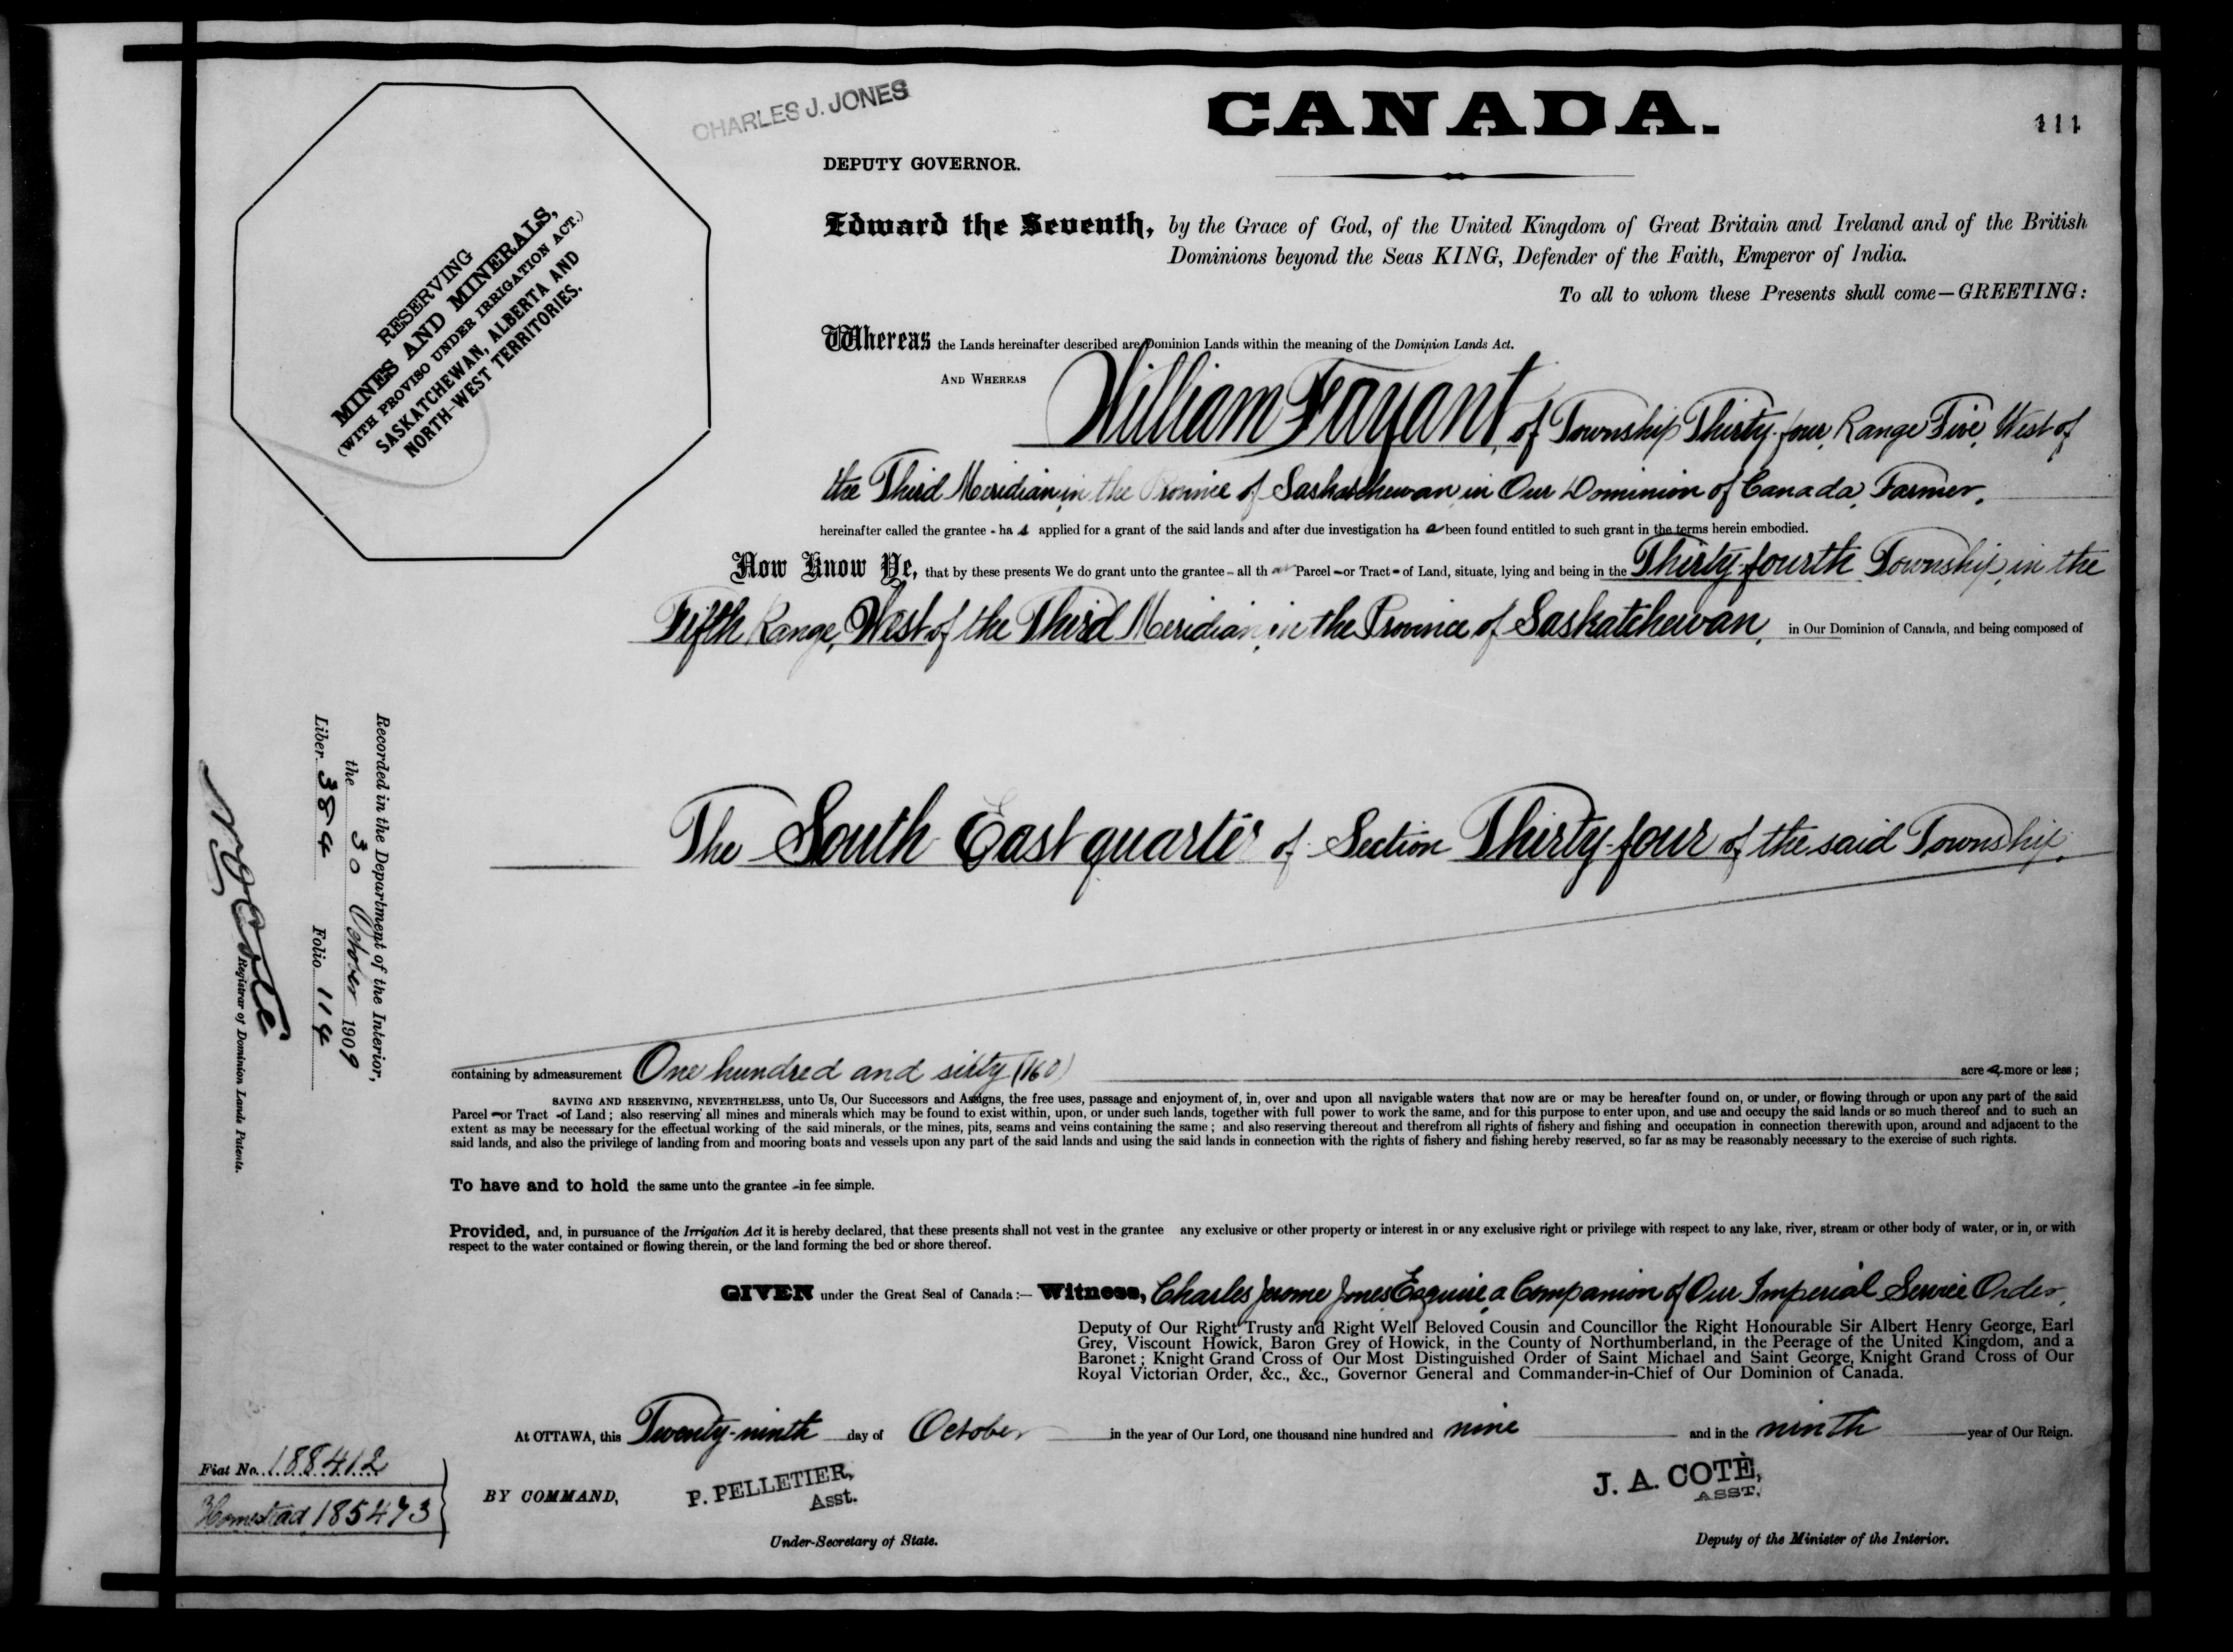 CHARLES J. JONES
CANADA.
111
DEPUTY GOVERNOR.
RESERVING
MINES AND MINERALS,
(WITH PROVISO UNDER IRRIGATION ACT.)
SASKATCHEWAN, ALBERTA AND
NORTH-WEST TERRITORIES.
Edward the Seventh, by the Grace of God, of the United Kingdom of Great Britain and Ireland and of the British
Dominions beyond the Seas KING, Defender of the Faith, Emperor of India.
To all to whom these Presents shall come—GREETING:
Whereas the Lands hereinafter described are Dominion Lands within the meaning of the Dominion Lands Act.
AND WHEREAS William Fayant, of Township Thirty-four, Range Five, West of
the Third Meridian, in the Province of Saskatchewan in Our Dominion of Canada, Farmer,
hereinafter called the grantee - ha s applied for a grant of the said lands and after due investigation ha s been found entitled to such grant in the terms herein embodied.
Now Know Ye, that by these presents We do grant unto the grantee - all th at Parcel - or Tract - of Land, situate, lying and being in the Thirty-fourth Township, in the
Fifth Range, West of the Third Meridian, in the Province of Saskatchewan, in Our Dominion of Canada, and being composed of
The South East quarter of Section Thirty-four of the said Township,
containing by admeasurement One hundred and sixty (160) acre s, more or less;
SAVING AND RESERVING, NEVERTHELESS, unto Us, Our Successors and Assigns, the free uses, passage and enjoyment of, in, over and upon all navigable waters that now are or may be hereafter found on, or under, or flowing through or upon any part of the said
Parcel - or Tract - of Land; also reserving all mines and minerals which may be found to exist within, upon, or under such lands, together with full power to work the same, and for this purpose to enter upon, and use and occupy the said lands or so much thereof and to such an
extent as may be necessary for the effectual working of the said minerals, or the mines, pits, seams and veins containing the same; and also reserving thereout and therefrom all rights of fishery and fishing and occupation in connection therewith upon, around and adjacent to the
said lands, and also the privilege of landing from and mooring boats and vessels upon any part of the said lands and using the said lands in connection with the rights of fishery and fishing hereby reserved, so far as may be reasonably necessary to the exercise of such rights.
To have and to hold the same unto the grantee - in fee simple.
Provided, and, in pursuance of the Irrigation Act it is hereby declared, that these presents shall not vest in the grantee any exclusive or other property or interest in or any exclusive right or privilege with respect to any lake, river, stream or other body of water, or in, or with
respect to the water contained or flowing therein, or the land forming the bed or shore thereof.
GIVEN under the Great Seal of Canada:— Witness, Charles Jerome Jones Esquire, a Companion of Our Imperial Service Order,
Deputy of Our Right Trusty and Right Well Beloved Cousin and Councillor the Right Honourable Sir Albert Henry George, Earl
Grey, Viscount Howick, Baron Grey of Howick, in the County of Northumberland, in the Peerage of the United Kingdom, and a
Baronet; Knight Grand Cross of Our Most Distinguished Order of Saint Michael and Saint George, Knight Grand Cross of Our
Royal Victorian Order, &c., &c., Governor General and Commander-in-Chief of Our Dominion of Canada.
At OTTAWA, this Twenty-ninth day of October in the year of Our Lord, one thousand nine hundred and nine and in the ninth year of Our Reign.
BY COMMAND,
P. PELLETIER,
Asst.
Under-Secretary of State.
J. A. COTÈ,
ASST.
Deputy of the Minister of the Interior.
Fiat No. 188412
Homestead 185473
Recorded in the Department of the Interior,
the 30 October 1909
Liber 384 Folio 114
N O Coté
Registrar of Dominion Lands Patents.